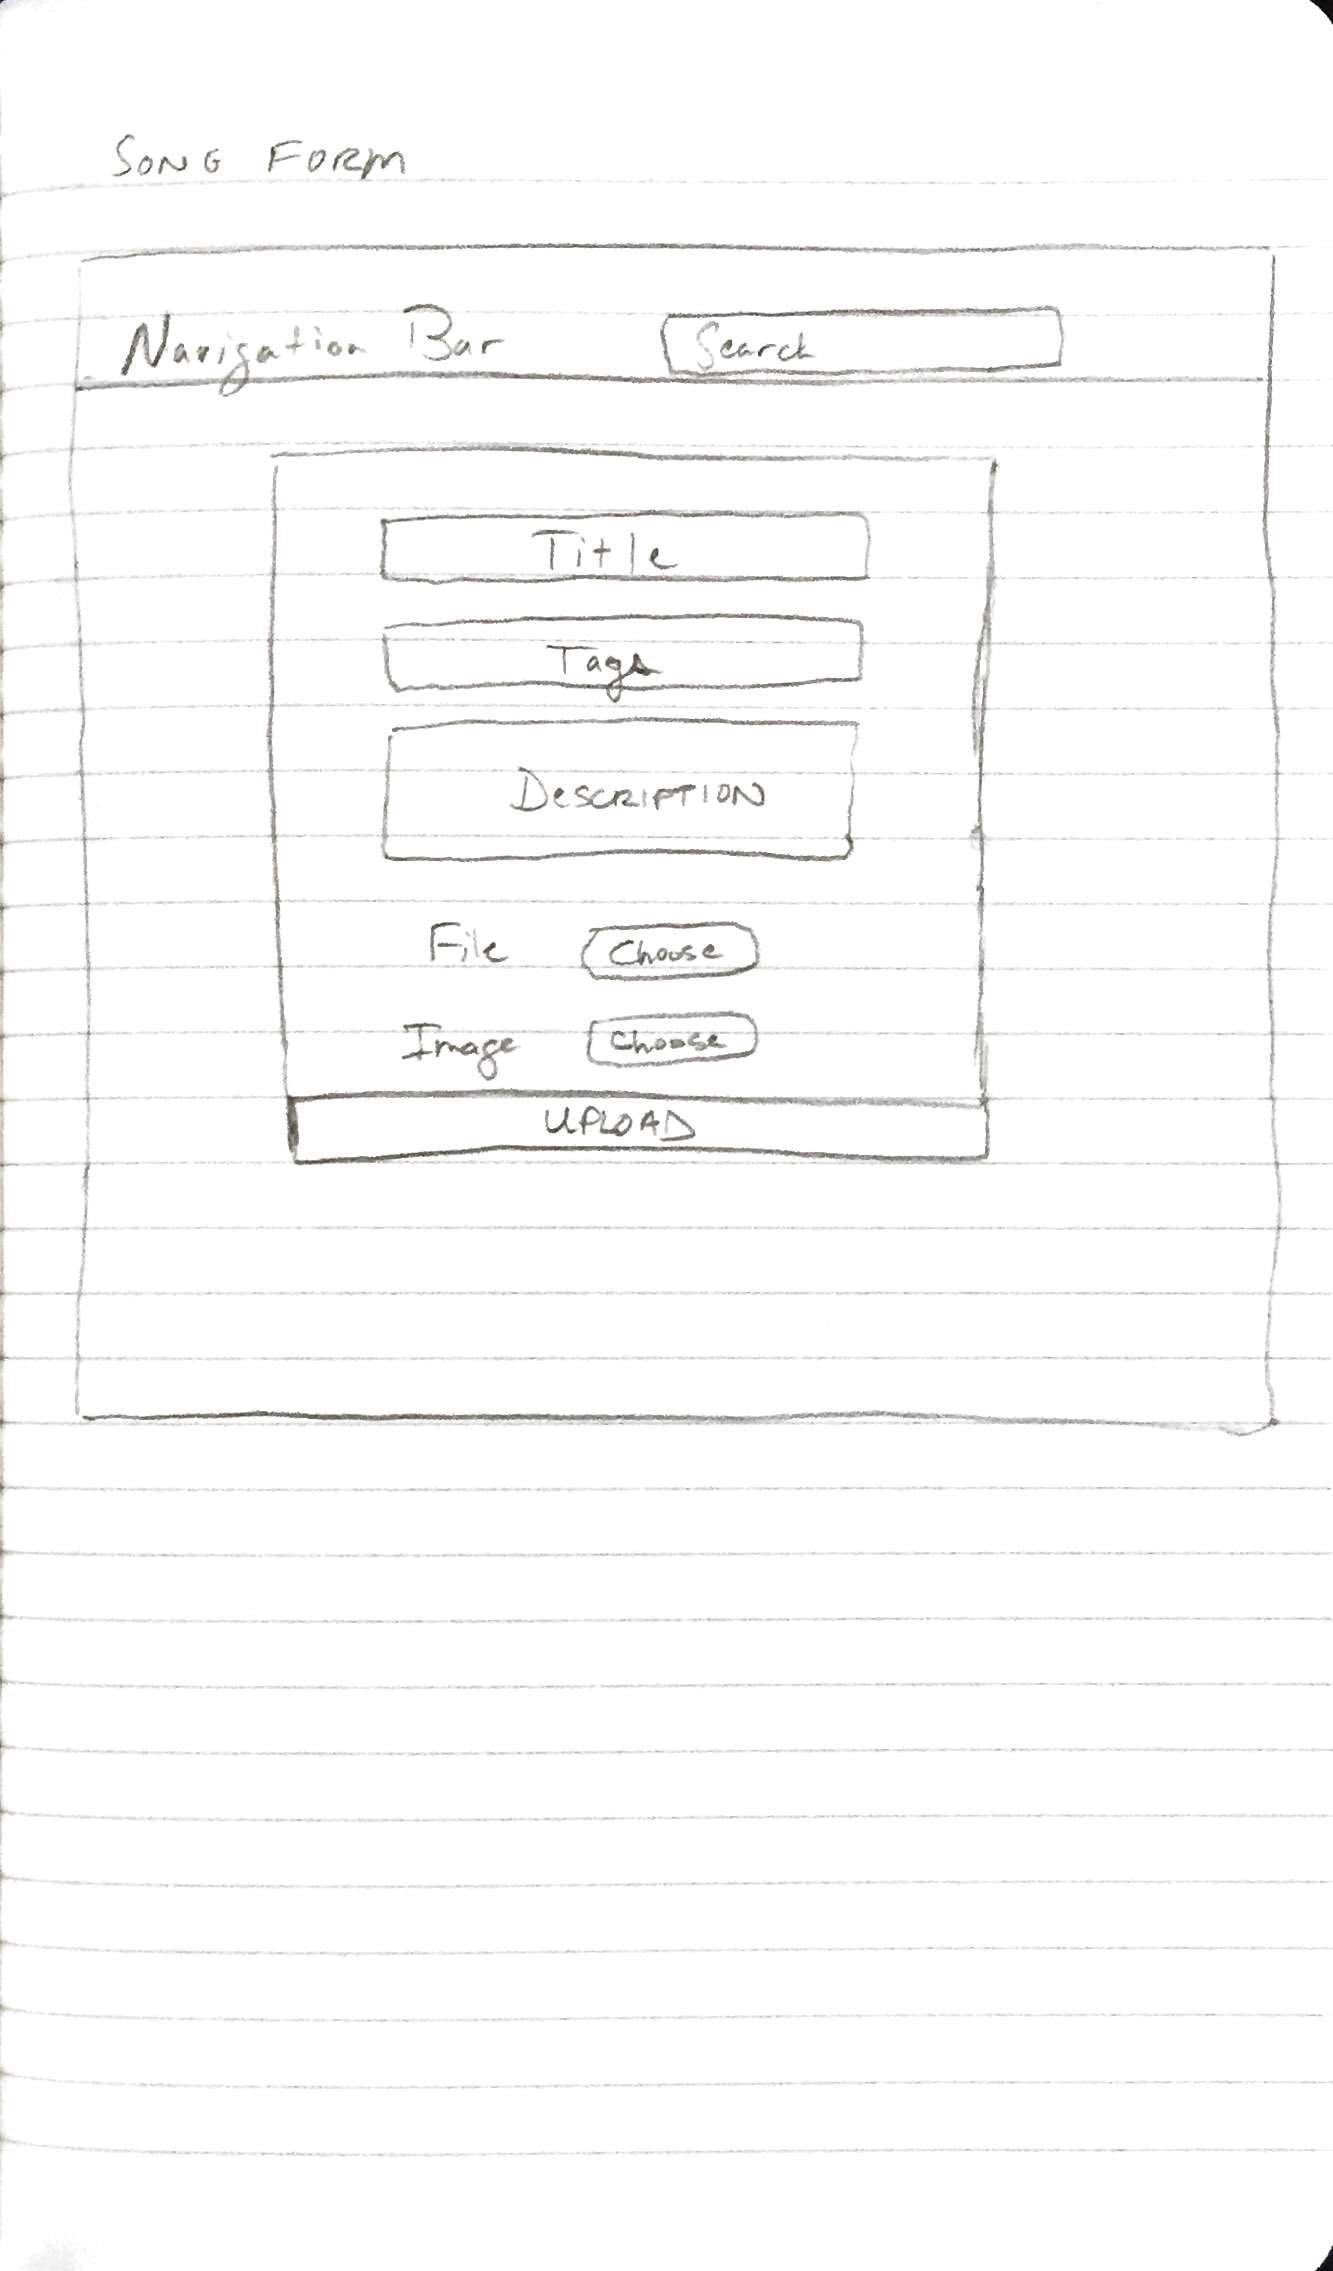 SONG FORM
Navigation Bar Search
Title
Tags
DESCRIPTION
File Choose
Image Choose
UPLOAD